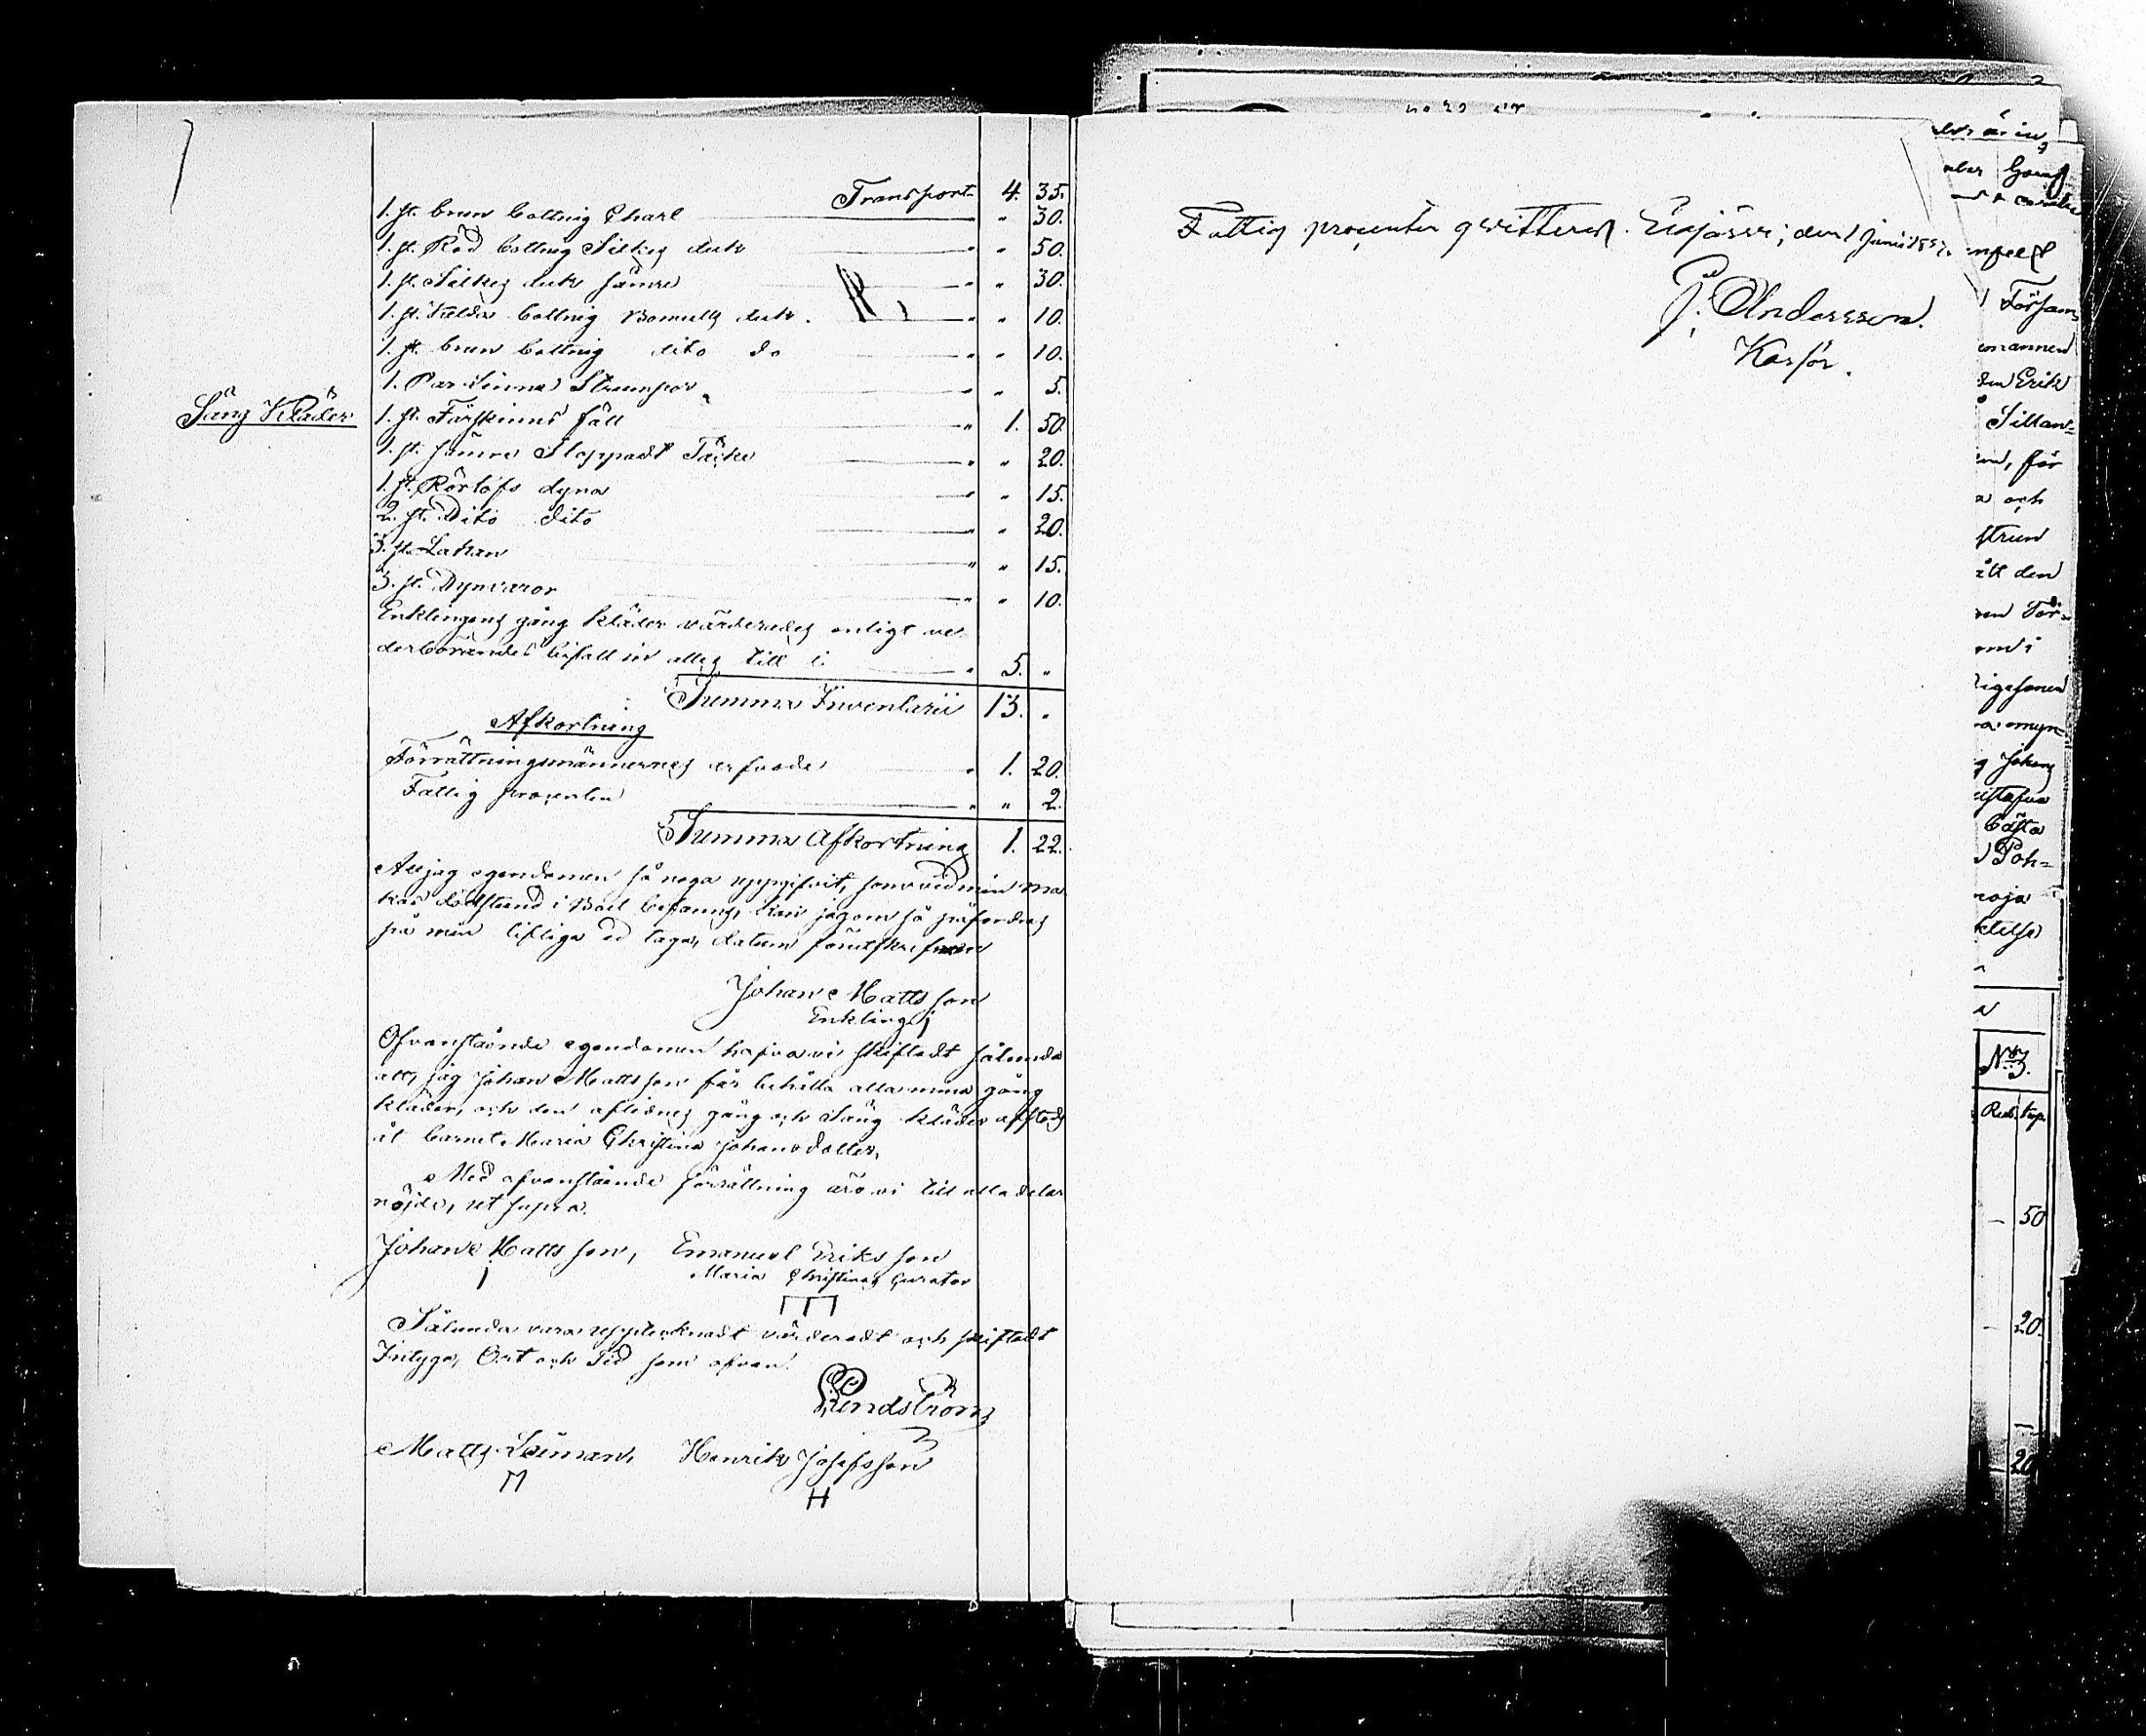 Transport 4. 35.
1. st. brun bottnig Charl " 30.
1. st. Röd bottnig Silkes duk " " 50.
1. st. Silkes duk sämre " " 30.
1. st. bottnig Bomulls duk. " " 10.
1. st. brun bottnig dito do " " 10.
1. Par Strumpor " " 5.
Säng Kläder
1. st. Fårskinns fäll " 1. 50.
1. st. sämre Stoppadt Täcke " " 20.
1. st. Rörlöfs dyna " " 15.
2. st. Dito dito " " 20.
3. st. Lakan " " 15.
3. st. Dynvaror " " 10.
Enklingens gång kläder värderades enligt ve-
derbörandes bifall in alles till " 5. "
Summa Inventarii 13. "
Afkortning
Förrättningsmännernes arfvode " 1. 20.
Fattig procenten " " 2.
Summa Afkortning 1. 22.
At jag egendomen så noga uppgifvit, som vid min ma-
kas dödstund i Boet befanns, kan jag om så påfordras
på min lifliga ed taga, datum förutskrifven
Johan Mattsson
Enkling
Ofvanstående egendomen hafva vi skiftadt sålunda
att, jag Johan Mattsson får behålla alla mina gång
kläder, och den aflidnes gång och Säng kläder afstods
åt barnet Maria Christina Johansdotter.
Med ofvanstående förrättning äro vi till alla delar
nöjde, ut supra.
Johan Mattsson, Emanuel Eriksson
Maria Christinas Curator
Sålunda vara upptecknadt värderadt och skiftadt
Intyga, Ort och Tid som ofvan.
Lindström
Matts Henrik Josefsson
M H
Fattig procenten qvitteras. den 1 Juni
J. Andersson.
Kassör.
Försam
Erik
Sillan=
för
a och
den
Johan
bästa
No 3.
Rub. kop.
50
20.
20